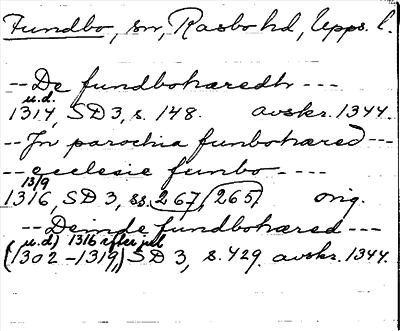 Fundbo, sn, Rasbo hd, Upps. l.
-- De fundbohæredh ---
u.d.
1314, SD 3, s. 148. avskr. 1344.
-- In parochia funbohæred ---
-- ecclesie funbo ----
13/9
1316, SD 3, ss. 267, (265) orig.
-- Deinde fundbohæred ---
u.d) 1316 efter jul
(1302-1319), SD 3, s. 429. avskr. 1344.